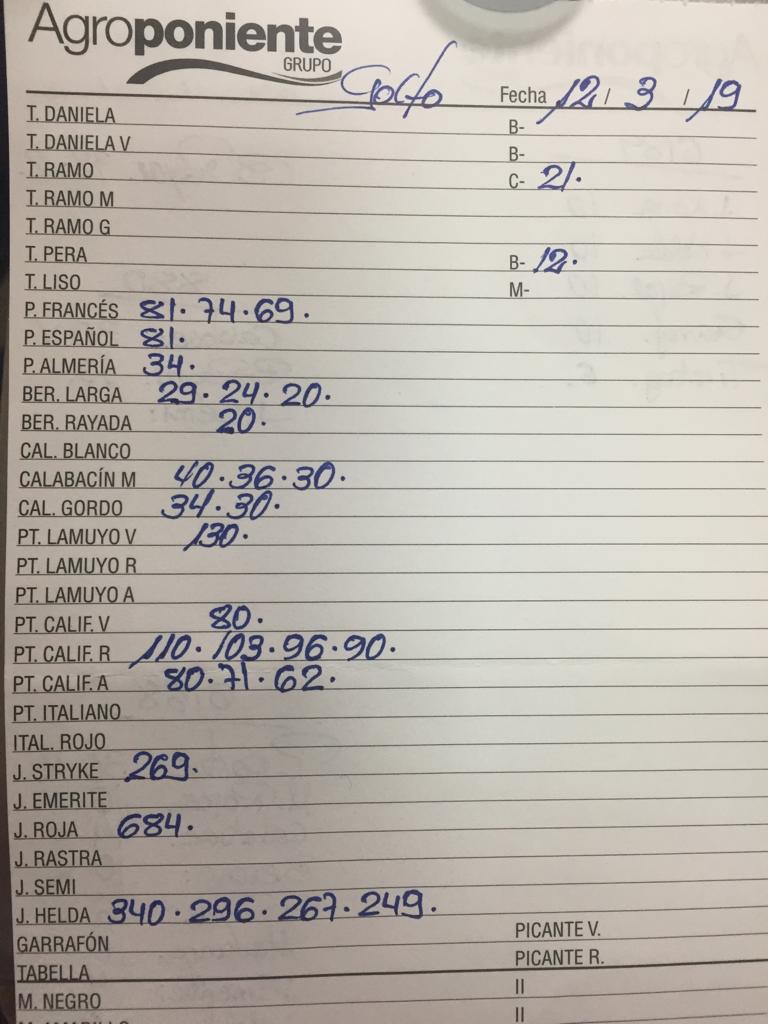 Agroponiente
GRUPO
Golfo
Fecha 12 / 3 / 19
T. DANIELA B-
T. DANIELA V B-
T. RAMO C- 21.
T. RAMO M
T. RAMO G
T. PERA B- 12.
T. LISO M-
P. FRANCÉS 81. 74. 69.
P. ESPAÑOL 81.
P. ALMERÍA 34.
BER. LARGA 29. 24. 20.
BER. RAYADA 20.
CAL. BLANCO
CALABACÍN M 40. 36. 30.
CAL. GORDO 34. 30.
PT. LAMUYO V 130.
PT. LAMUYO R
PT. LAMUYO A
PT. CALIF. V 80.
PT. CALIF. R 110. 103. 96. 90.
PT. CALIF. A 80. 71. 62.
PT. ITALIANO
ITAL. ROJO
J. STRYKE 269.
J. EMERITE
J. ROJA 684.
J. RASTRA
J. SEMI
J. HELDA 340. 296. 267. 249.
GARRAFÓN PICANTE V.
TABELLA PICANTE R.
M. NEGRO II
II